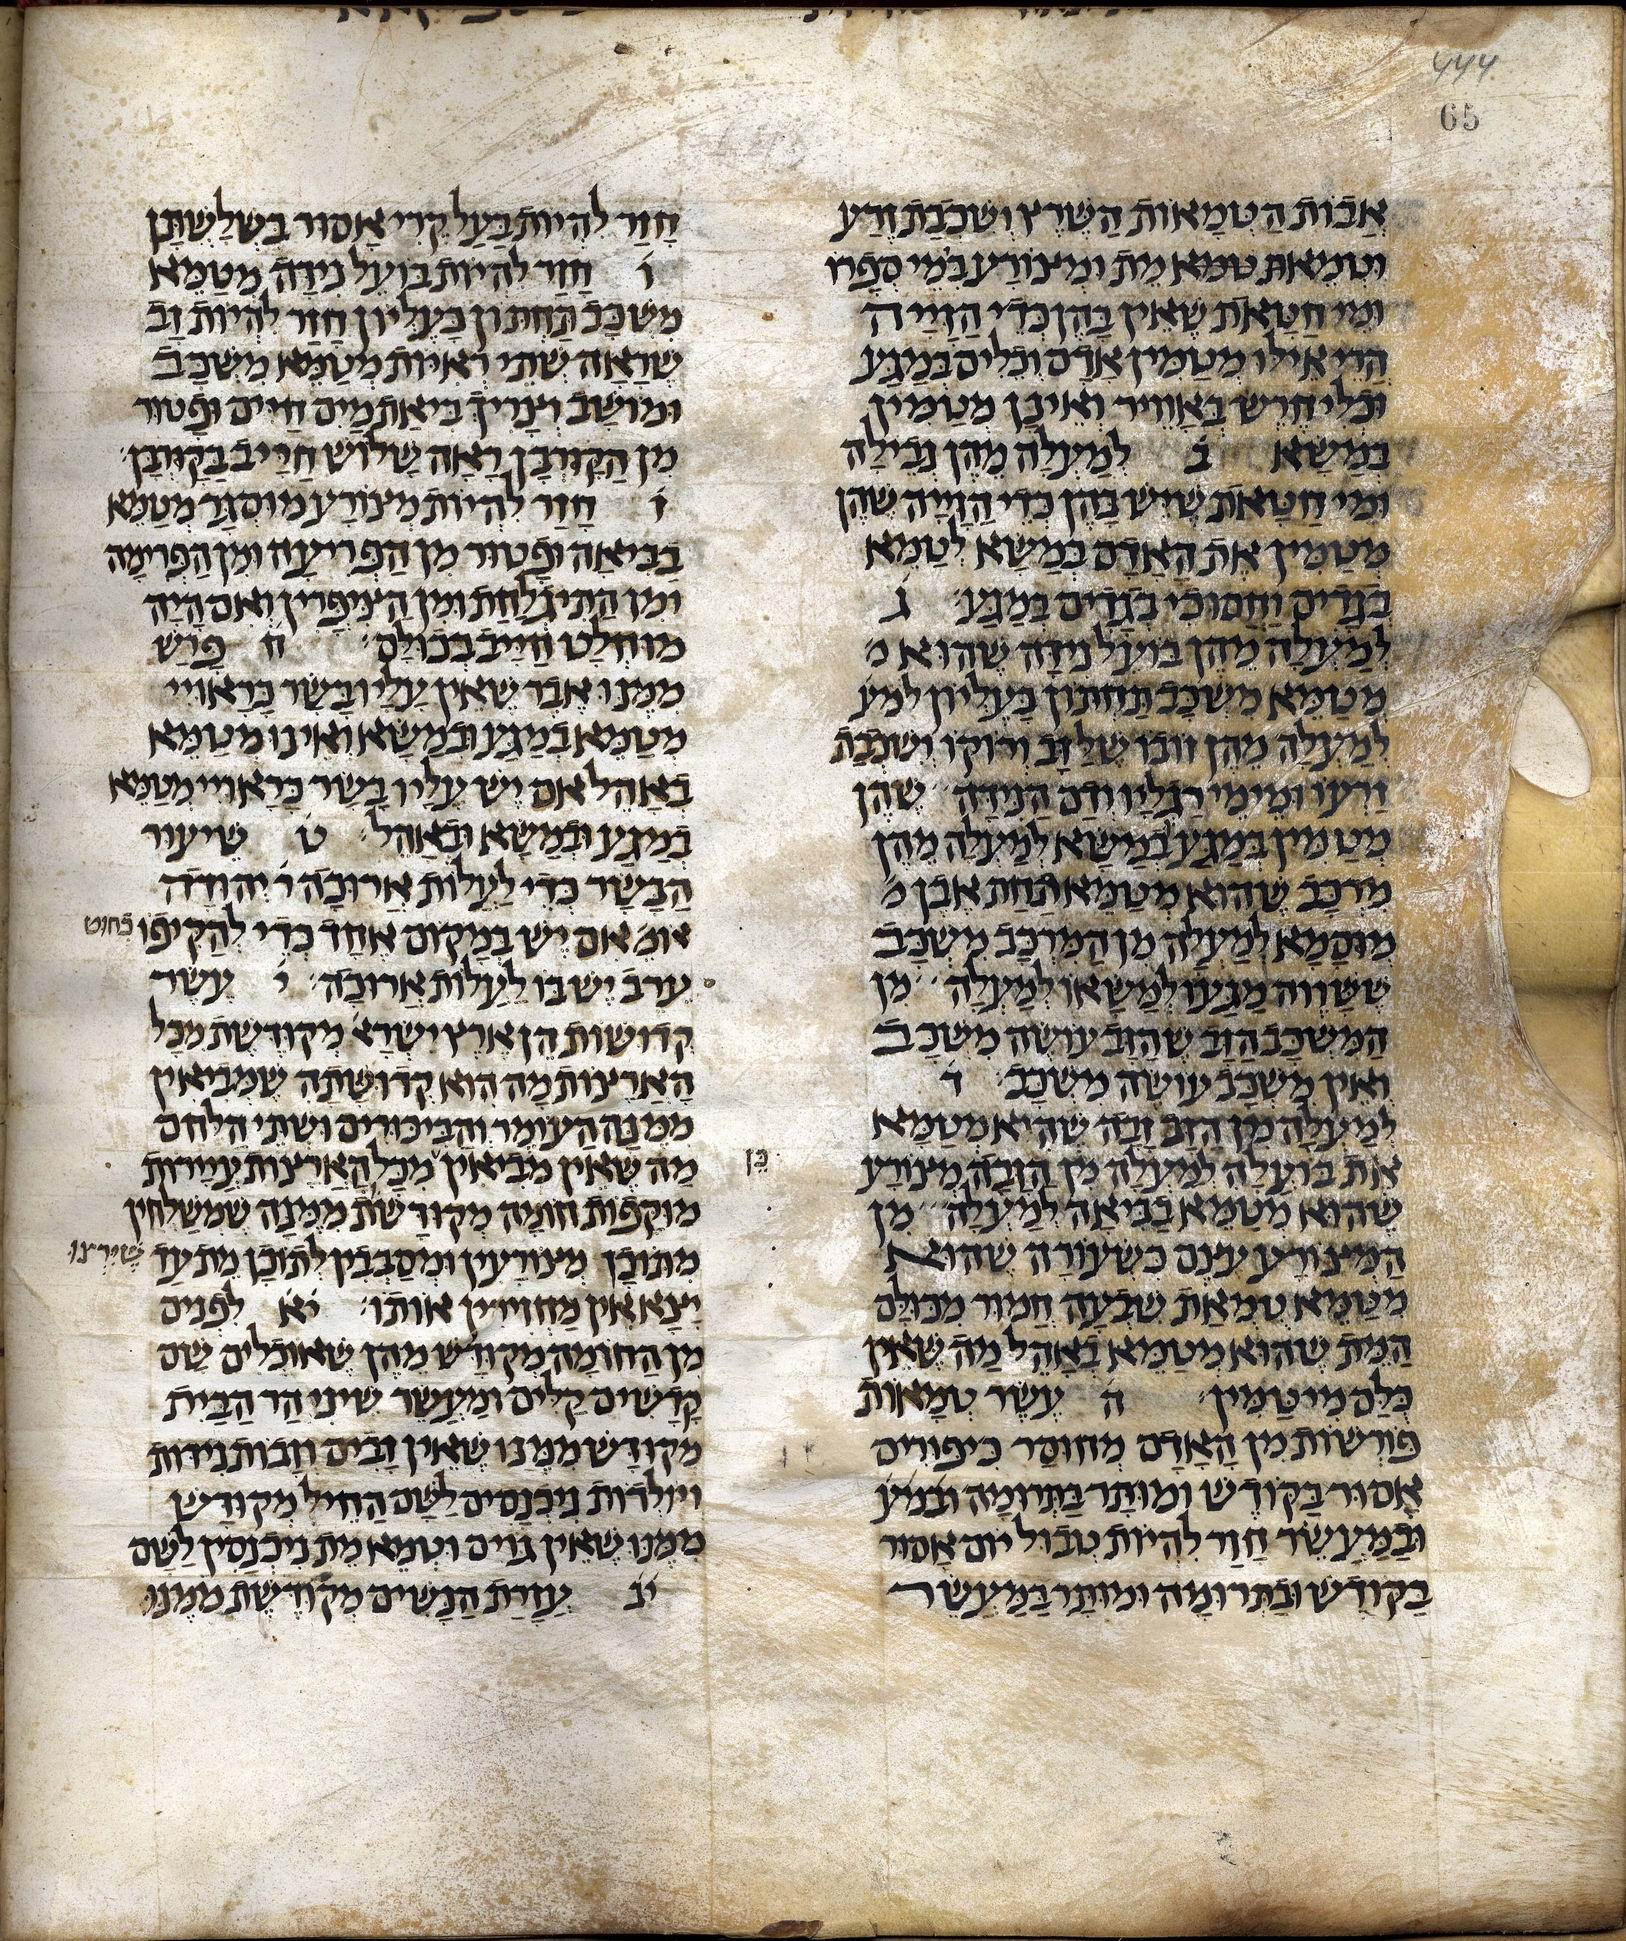 444
65
אבות הטמאות השרץ ושכבת זרע
וטמאת טמא מית ומצורע בימי ספרו
ומי חטאת שאין בהן כדי הזייה
הרי אילו מטמין אדם וכלים במגע
וכלי חרש באוויר ואינן מטמין
במשא ב למעלה מהן נבילה
ומי חטאת שיש בהן כדי הזייה שהן
מטמין את האדם במשא לטמא
בגדים וחסוכי בגדים במגע ג
למעלה מהן בועל נידה שהוא מ
מטמא משכב תחתון כעליון למע
למעלה מהן זובו שלזב ורוקו ושכבת
זרעו ומימי רגליו ודם הנידה שהן
מטמין במגע במשא למעלה מהן
מרכב שהוא מטמא תחת אבן מ
מוסמא למעלה מן המרכב משכב
ששווה מגעו למשאו למעלה מן
המשכב הזב שהזב עושה משכב
ואין משכב עושה משכב ד
למעלה מן הזב זבה שהיא מטמא
את בועלה למעלה מן הזבה מצורע
שהוא מטמא בביאה למעלה מן
המצורע עצם כשעורה שהוא
מטמא טמאת שבעה חמור מכולם
המת שהוא מטמא באהל מה שאין
כלם מיטמין ה עשר טמאות
פורשות מן האדם מחוסר כיפורים
אסור בקודש ומותר בתרומה ובמע
ובמעשר חזר להיות טבול יום אסור
בקודש ובתרומה ומותר במעשר
חזר להיות בעל קרי אסור בשלשתן
ו חזר להיות בועל נידה מטמא
משכב תחתון כעליון חזר להיות זב
שראה שתי ראיות מטמא משכב
ומושב וצריך ביאת מים חיים ופטור
מן הקורבן ראה שלוש חייב בקורבן
ז חזר להיות מצורע מוסגר מטמא
בביאה ופטור מן הפריעה ומן הפרימה
ומן התיגלחת ומן הציפרין ואם היה
מוחלט חייב בכולם ח פרש
ממנו אבר שאין עליו בשר כראויי
מטמא במגע ובמשא ואינו מטמא
באהל אם יש עליו בשר כראויי מטמא
במגע ובמשא ובאהל ט שיעור
הבשר כדי לעלות ארוכה ר יהודה
אומ אם יש במקום אחד כדי להקיפו כחוט
ערב יש בו לעלות ארוכה י עשר
קדושות הן ארץ ישרא מקודשת מכל
הארצות מה הוא קדושתה שמביאין
ממנה העומר והביכורים ושתי הלחם
מה שאין מביאין מכל הארצות עיירות כן
מוקפות חומה מקודשות ממנה שמשלחין
מתוכן מצורעין ומסבבין לתוכן מת עד שירצו
יצא אין מחזירין אותו יא לפנים
מן החומה מקודש מהן שאוכלים שם
קדשים קלים ומעשר שיני הר הבית
מקודש ממנו שאין זבים וזבות נידות
ויולדות ניכנסים לשם החיל מקודש
ממנו שאין גוים וטמא מת ניכנסין לשם
יב עזרת הנשים מקודשת ממנו